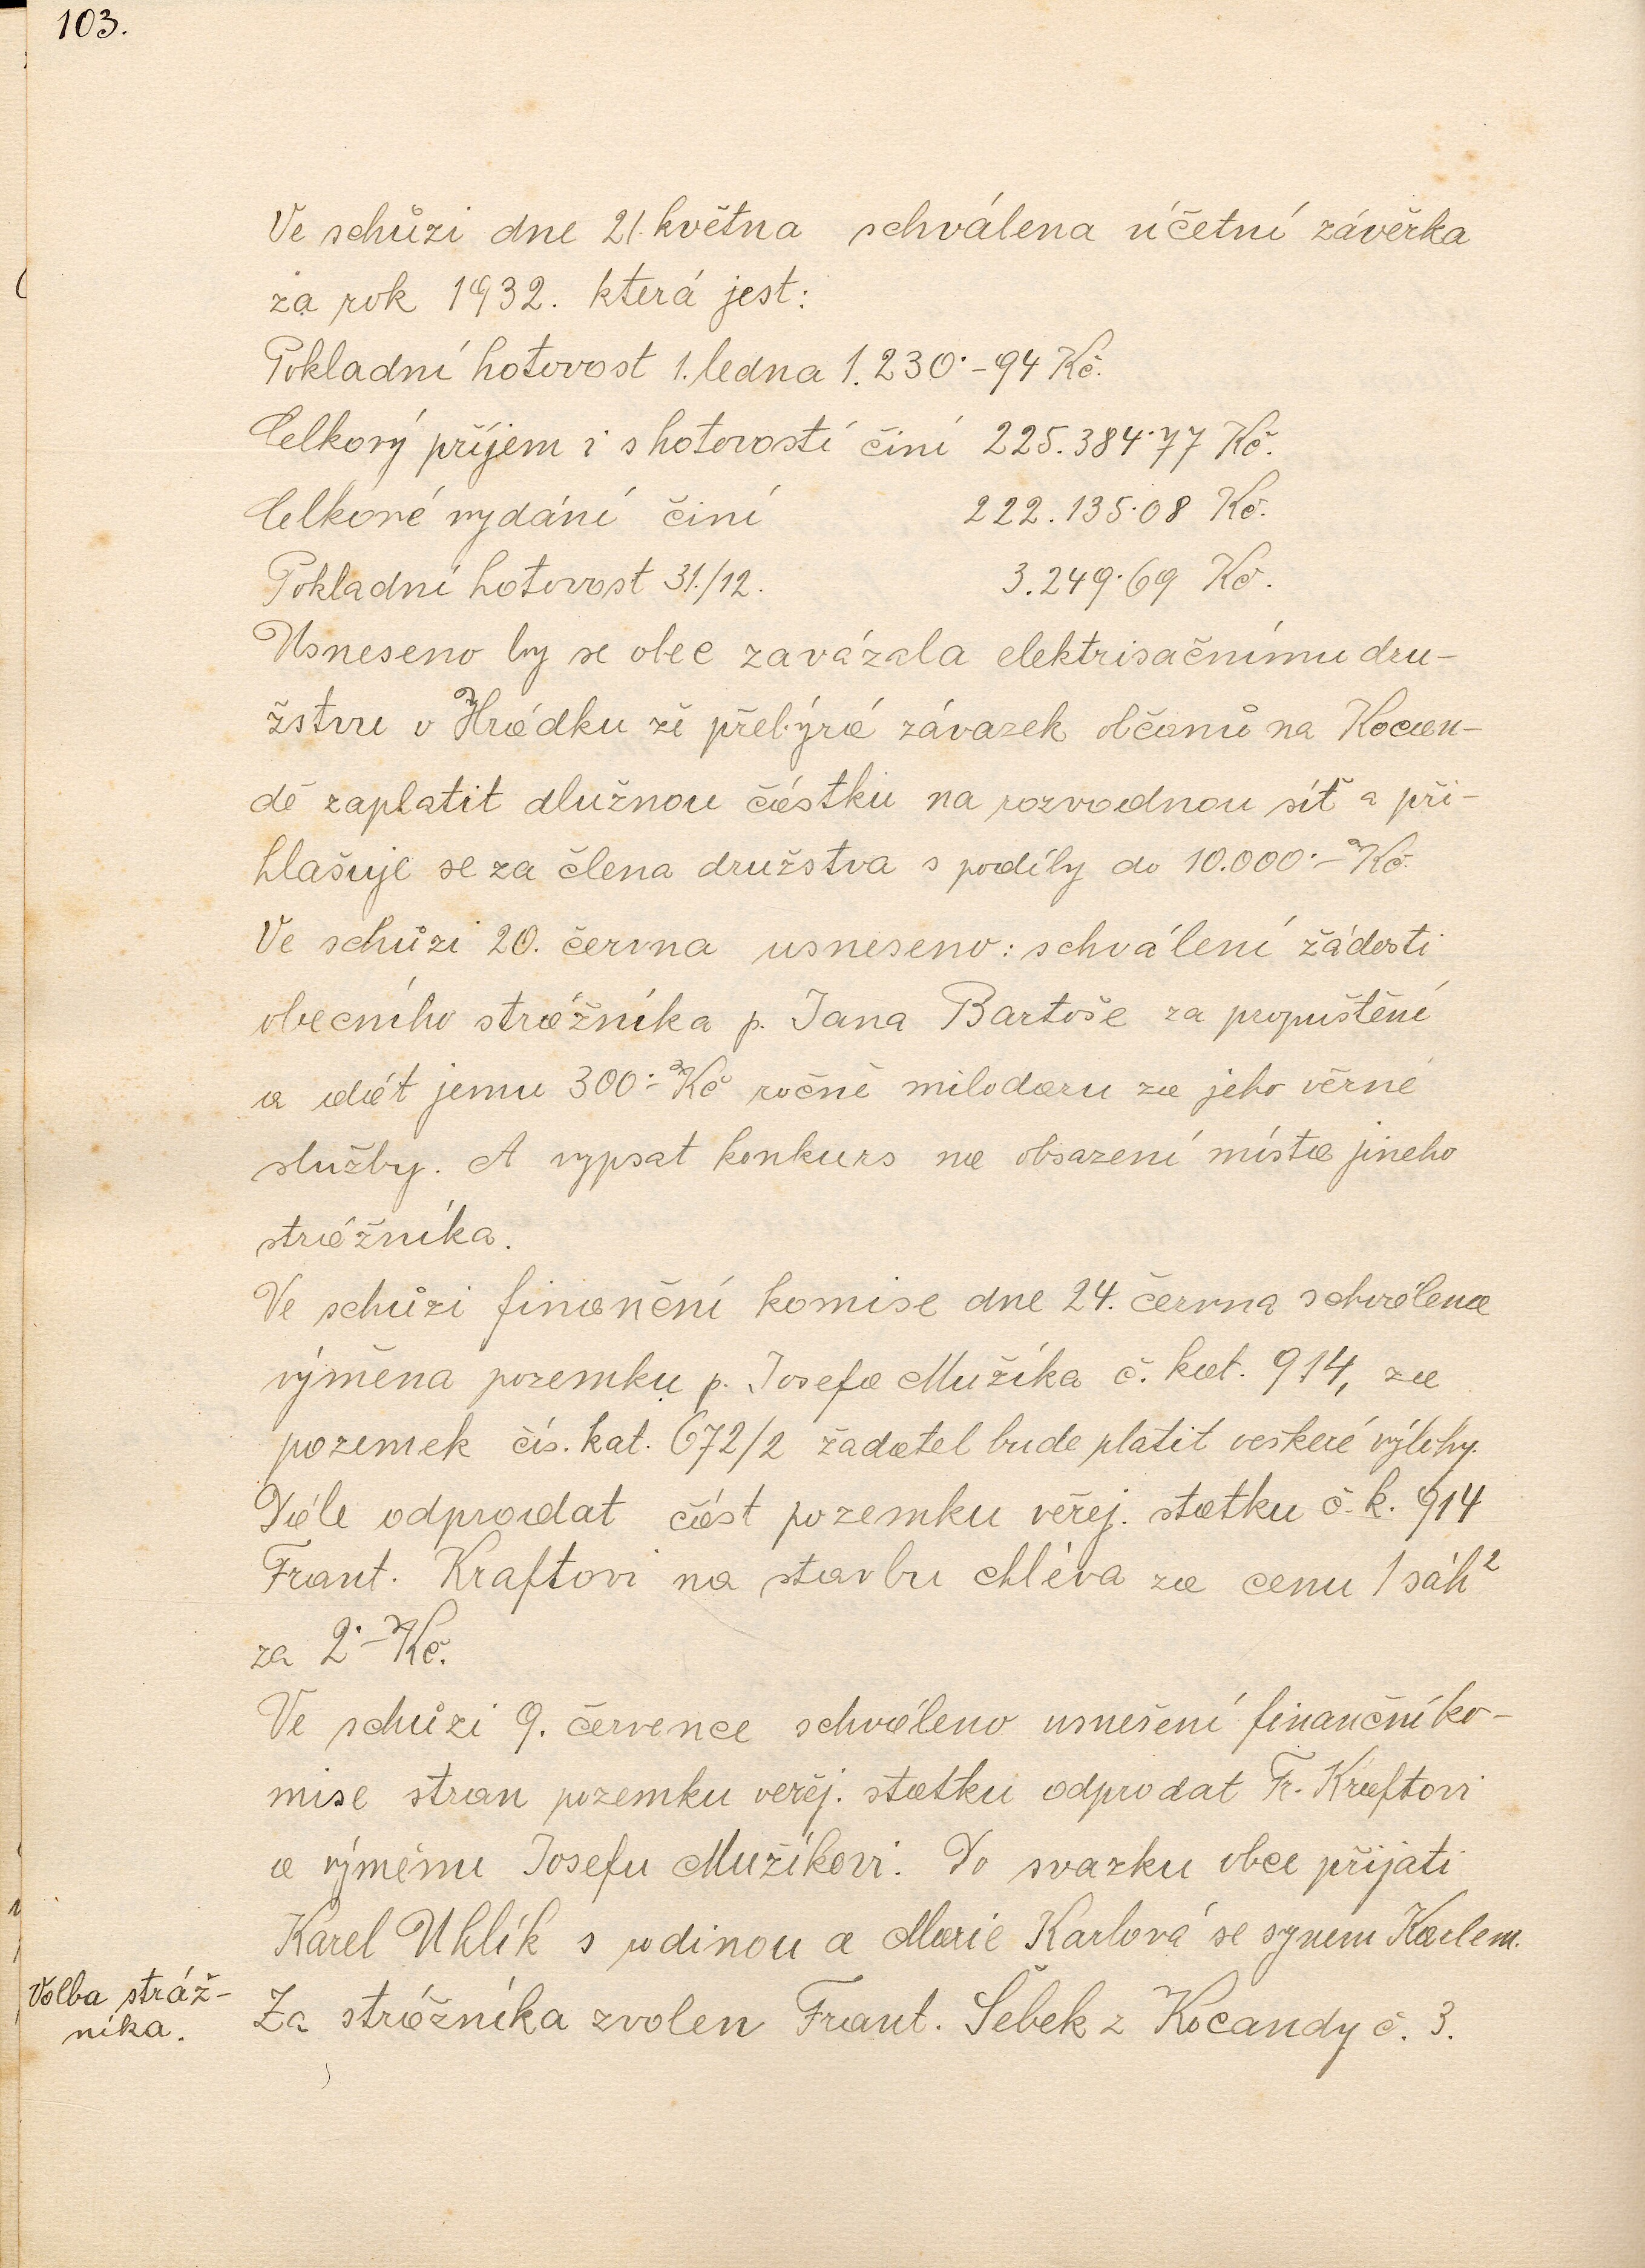 103.
Ve schůzi dne 21. května schválena účetní závěrka
za rok 1932. která jest:
Pokladní hotovost 1. ledna 1.230·-94 Kč.
Celkový příjem i s hotovostí činí 225.384·77 Kč.
Celkové vydání činí 222.135·08 Kč.
Pokladní hotovost 31./12. 3.249·69 Kč.
Usneseno by se obec zavázala elektrisačnímu dru-
žstvu v Hrádku že přebýrá závazek občanů na Kocan-
dě zaplatit dlužnou částku na rozvodnou síť a při-
hlašuje se za člena družstva s podíly do 10.000·- Kč.
Ve schůzi 20. června usneseno: schválení žádosti
obecního strážníka p. Jana Bartoše za propuštění
a dát jemu 300·- Kč ročně milodaru za jeho věrné
služby. A vypsat konkurs na obsazení místa jineho
strážníka.
Ve schůzi finanční komise dne 24. června schválena
výměna pozemku p. Josefa Mužíka č. kat. 914, za
pozemek čís. kat. 672/2 žadatel bude platit veškeré výlohy.
Dále odprodat část pozemku veřej. statku č. k. 914
Frant. Kraftovi na stavbu chléva za cenu 1 sáh²
za 2·- Kč.
Ve schůzi 9. července schváleno usnešení finanční ko-
mise stran pozemku veřěj. statku odprodat Fr. Kraftovi
a výměnu Josefu Mužíkovi. Do svazku obce přijati
Karel Uhlík s rodinou a Marie Karlová se synem Karlem.
Volba stráž-
níka.
Za strážníka zvolen Frant. Šebek z Kocandy č. 3.